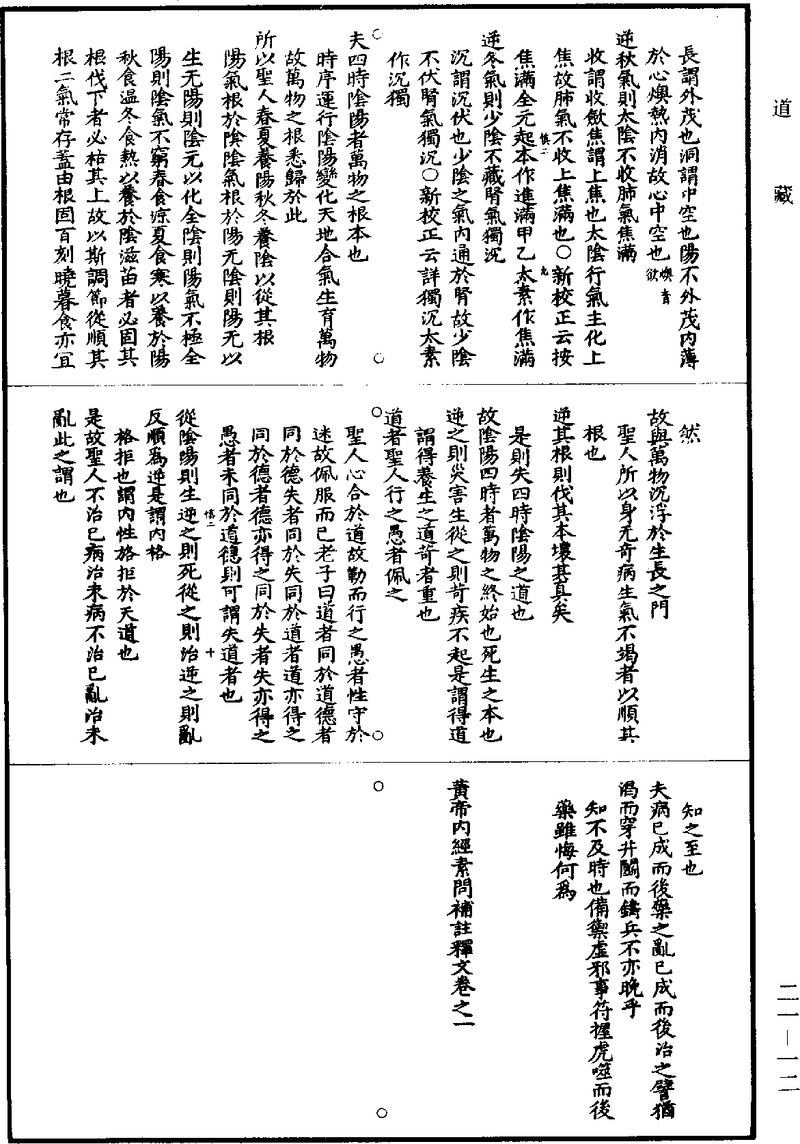 道藏
長謂外茂也洞謂中空也陽不外茂內薄
於心燠熱內消故心中空也燠音欲
逆秋氣則太陰不收肺氣焦滿
收謂收斂焦謂上焦也太陰行氣主化上
焦故肺氣不收上焦滿也○新校正云按
慎二 九
焦滿全元起本作進滿甲乙太素作焦滿
逆冬氣則少陰不藏腎氣獨沉
沉謂沉伏也少陰之氣內通於腎故少陰
不伏腎氣獨沉○新校正云詳獨沉太素
作沉獨
夫四時陰陽者萬物之根本也
時序運行陰陽變化天地合氣生育萬物
故萬物之根悉歸於此
所以聖人春夏養陽秋冬養陰以從其根
陽氣根於陰陰氣根於陽无陰則陽无以
生无陽則陰无以化全陰則陽氣不極全
陽則陰氣不窮春食涼夏食寒以養於陽
秋食溫冬食熱以養於陰滋苗者必固其
根伐下者必枯其上故以斯調節從順其
根二氣常存蓋由根固百刻曉暮食亦宜
然
故與萬物沉浮於生長之門
聖人所以身无奇病生氣不竭者以順其
根也
逆其根則伐其本壞其真矣
是則失四時陰陽之道也
故陰陽四時者萬物之終始也死生之本也
逆之則災害生從之則苛疾不起是謂得道
謂得養生之道苛者重也
道者聖人行之愚者佩之
聖人心合於道故勤而行之愚者性守於
迷故佩服而已老子曰道者同於道德者
同於德失者同於失同於道者道亦得之
同於德者德亦得之同於失者失亦得之
愚者未同於道德則可謂失道者也
慎二 十
從陰陽則生逆之則死從之則治逆之則亂
反順為逆是謂內格
格拒也謂內性格拒於天道也
是故聖人不治已病治未病不治已亂治未
亂此之謂也
知之至也
夫病已成而後藥之亂已成而後治之譬猶
渴而穿井鬭而鑄兵不亦晚乎
知不及時也備禦虛邪事符握虎噬而後
藥雖悔何為
黃帝內經素問補註釋文卷之二
二一—一二